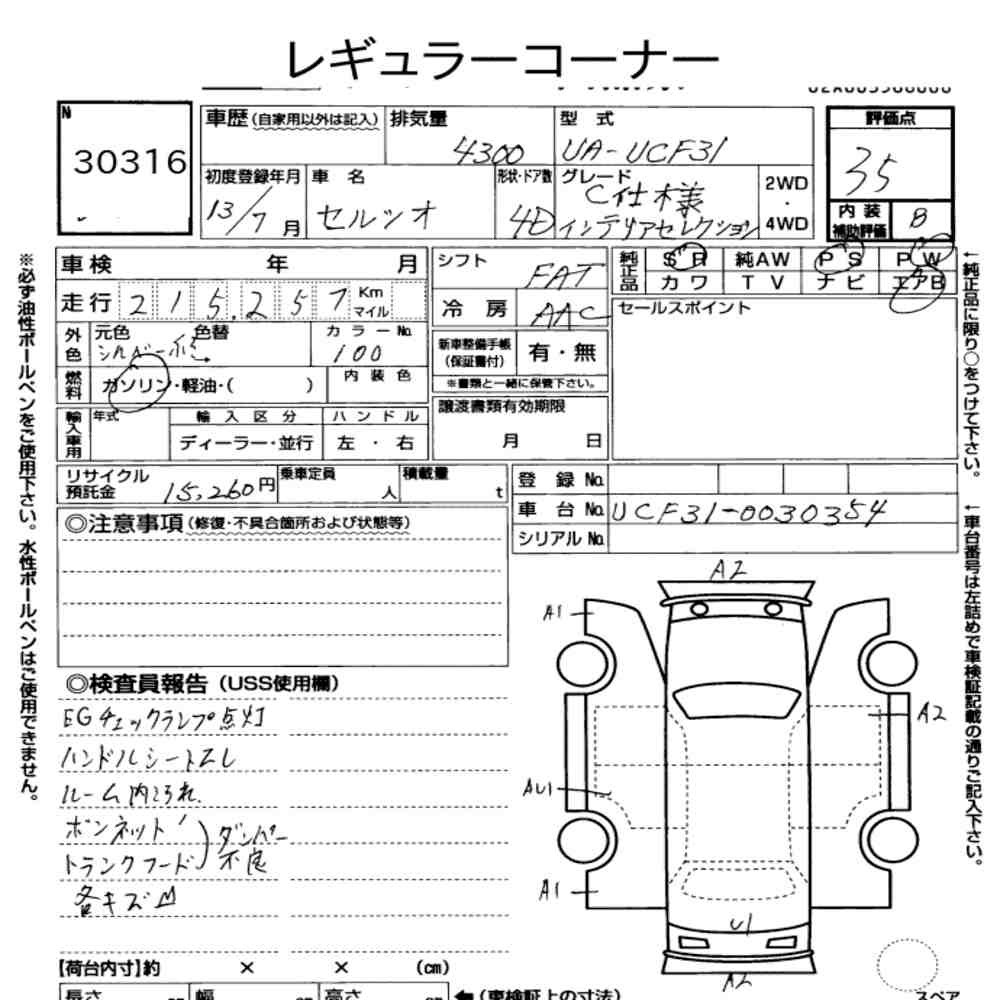 レギュラーコーナー
N
30316
車歴(自家用以外は記入)
排気量
4300
型 式
UA-UCF31
評価点
35
初度登録年月
13/7月
車 名
セルシオ
形状・ドア数
4D
グレード
C仕様
インテリアセレクション
2WD
・
4WD
内装
補助評価
B
車検 年 月
走行 215,257 Km
マイル
外色
元色
シルバー
色替
カラーNo.
100
燃料
ガソリン・軽油・( )
内装色
輸入車用
年式
輸入区分
ディーラー・並行
ハンドル
左・右
シフト
FAT
冷房
AAC
新車整備手帳
(保証書付)
有・無
※書類と一緒に保管下さい。
譲渡書類有効期限
月 日
純正品
SR 純AW PS PW
カワ TV ナビ エアB
セールスポイント
リサイクル
預託金
15,260円
乗車定員
人
積載量
t
登録No.
車台No.
UCF31-0030354
シリアルNo.
◎注意事項(修復・不具合箇所および状態等)
◎検査員報告(USS使用欄)
EGチェックランプ点灯
ハンドルシートスレ
ルーム内よごれ
ボンネット
トランクフード
ダンパー
不良
各キズ凹
A2
A1
A2
AU1
A1
U1
A2
【荷台内寸】約 × × (cm)
長さ cm 幅 cm 高さ cm
←(車検証上の寸法)
スペア
※必ず油性ボールペンをご使用下さい。水性ボールペンはご使用できません。
←純正品に限り○をつけて下さい。
←車台番号は左詰めで車検証記載の通りご記入下さい。